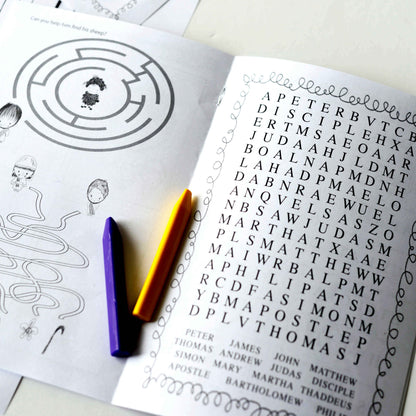 Can you help tom find his sheep?
A P E T E R B V T C
D I S C I P L E H X A
E R T M S A E O A A R
J U D A A H J L D M T
B O A L N A P M D N H
D A B N R A E W U E L
A N Q V E L S A S Z O
N B S A W J U D A S M
M A R T H A T X A A E
P L S M A T T H E W W
M A I W R B A L P M T
A P H I L I P A T S D
R C D F A S I M O N M
Y B M A P O S T L E P
D P L V T H O M A S J
PETER JAMES JOHN MATTHEW
THOMAS ANDREW JUDAS DISCIPLE
SIMON MARY MARTHA THADDEUS
APOSTLE BARTHOLOMEW PHILIP